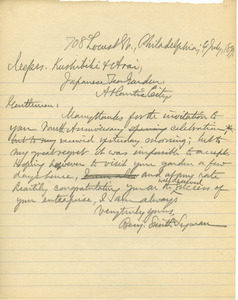 708 Locust St., Philadelphia, 9 July, 1897.
Messrs. Kushibiki & Arai,
Japanese Tea Garden,
Atlantic City.
Gentlemen:
Many thanks for the invitation to
your Anniversary opening celebration,
received yesterday morning; but to
my great regret it was impossible to accept.
Hoping however to visit your garden a few
days hence, and at any rate
heartily congratulating you on the success of
your enterprise, I am always
Very truly yours,
Benj. Smith Lyman